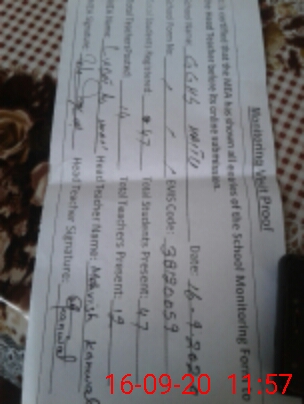 Monitoring Visit Proof
is certified that the MEA has shown all entries of the School Monitoring Form to
the Head Teacher before its online submission.
School Name: GGHS Date: 16-9-202
School Form No: / / EMIS Code: 38120059
Total Students Registered: 47 Total Students Present: 47
Total Teachers Posted: 14 Total Teachers Present: 12
MEA Name: Head Teacher Name: Mehvish Kanwal
MEA Signature: Head Teacher Signature: Kanwal
16-09-20 11:57